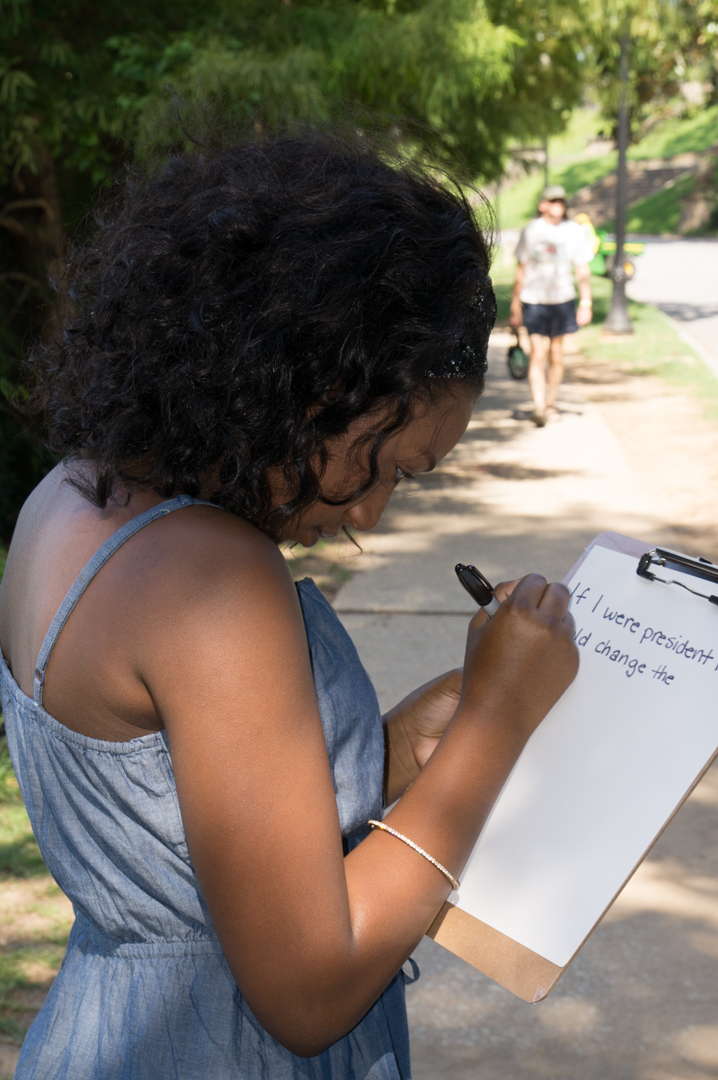 If I were president
ld change the